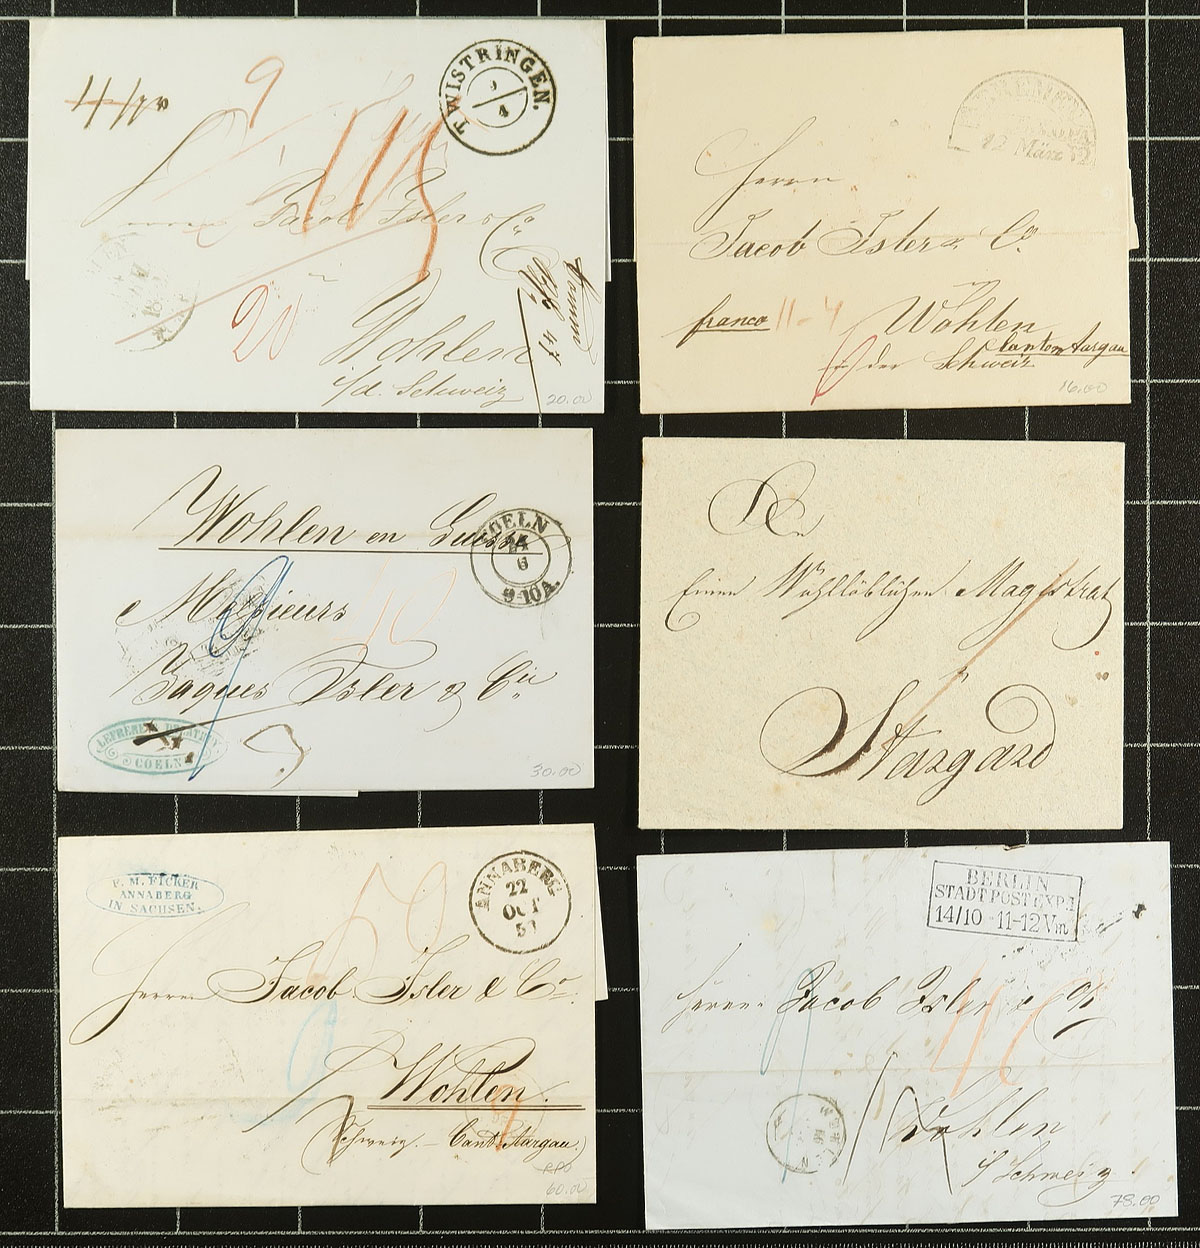 4/
9
TWISTRINGEN.
9
4
115
Jacob Isler & Co
20
Wohlen
i/d. Schweiz
20.00
12 März
Herrn
Jacob Isler & Co
franco 11-4 Wohlen
Canton Aargau
in der Schweiz
16.00
Wohlen en Suisse
COELN
24
6
9-10A.
Messieurs
Jaques Isler & Cie
COELN
30.00
Einen Wohllöblichen Magistrat
Stargard
F. M. FICKER
ANNABERG
IN SACHSEN.
ANNABERG
22
OCT
Herrn Jacob Isler & Co
Wohlen.
Schweiz. - Cant. Aargau.
60.00
BERLIN
STADTPOST EXP.I
14/10 11-12 Vm
Herrn Jacob Isler & Co
Wohlen
i/Schweiz
78.00